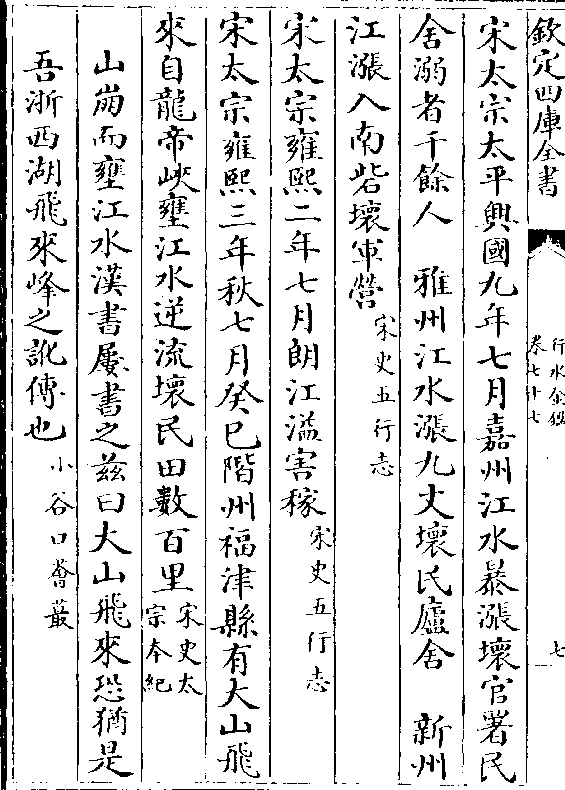 欽定四庫全書
行水金鑑
卷七十七
七
宋太宗太平興國九年七月嘉州江水暴漲壞官署民
舍溺者千餘人　雅州江水漲九丈壞民廬舍　新州
江漲入南砦壞軍營宋史五行志
宋太宗雍熙二年七月朗江溢害稼宋史五行志
宋太宗雍熙三年秋七月癸巳階州福津縣有大山飛
來自龍帝峽壅江水逆流壞民田數百里宋史太宗本紀
山崩而壅江水漢書屢書之兹曰大山飛來恐猶是
吾浙西湖飛來峰之訛傳也小谷口薈蕞